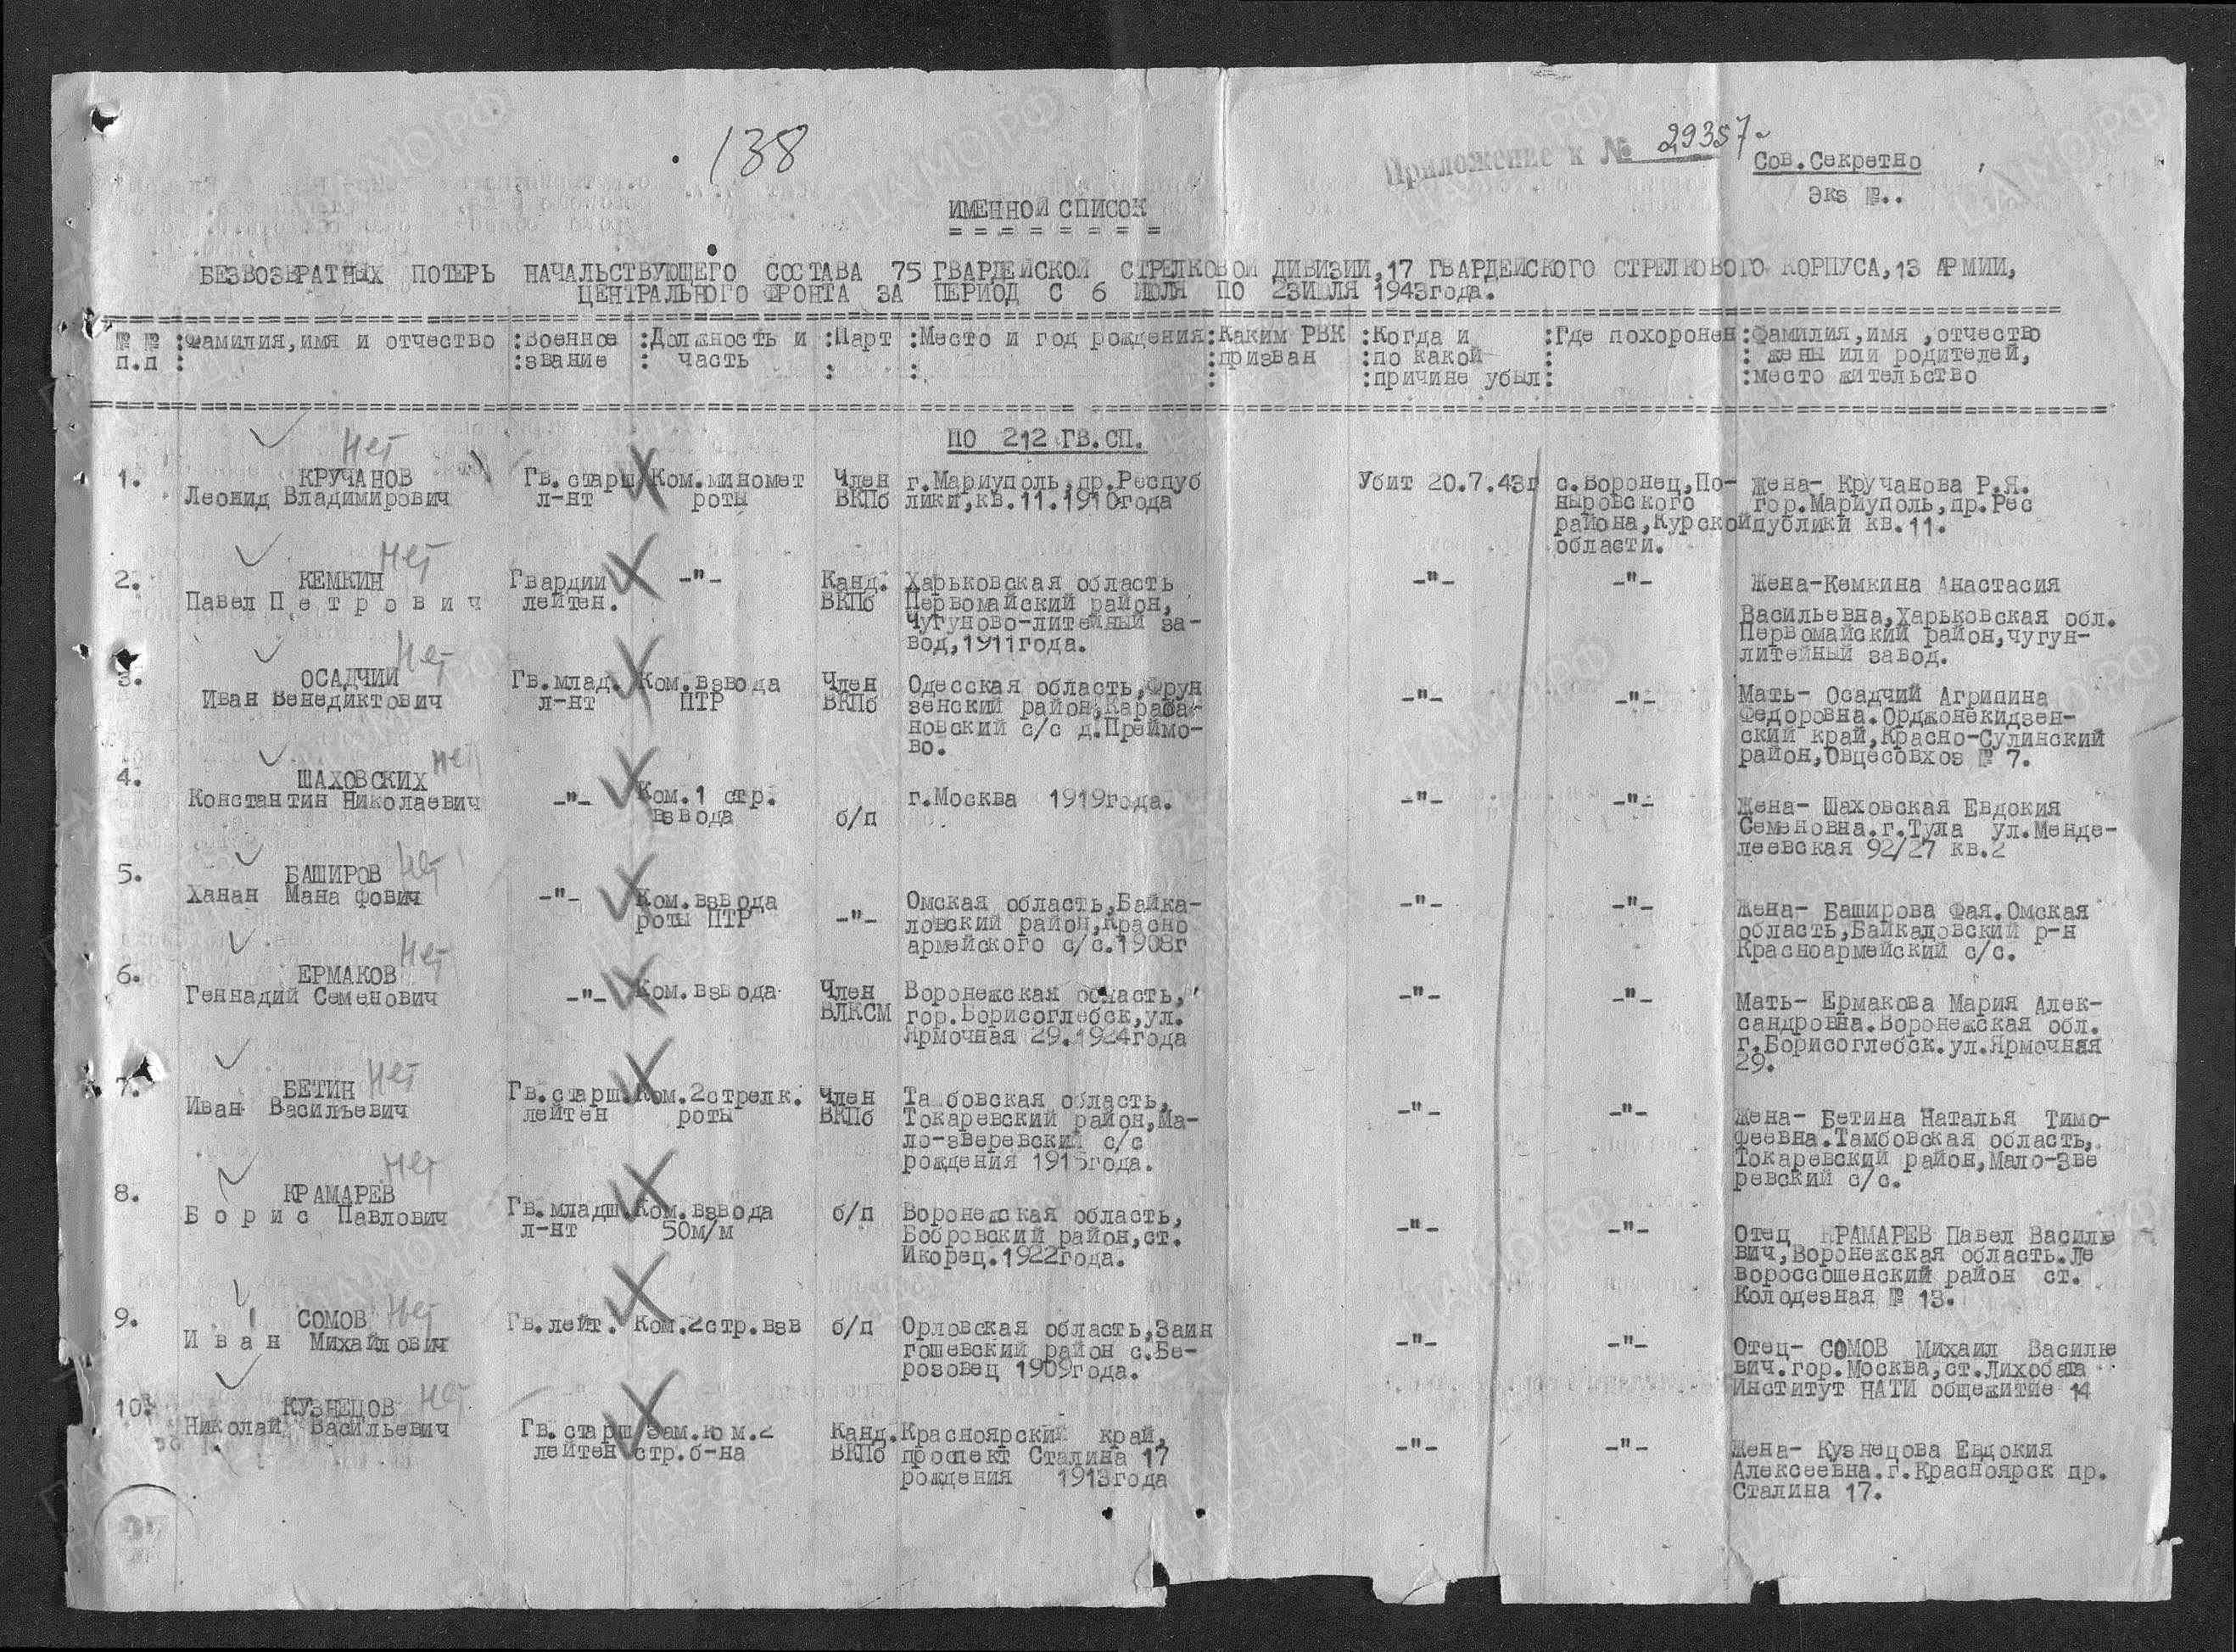 138
Приложение к № 29357
Сов.Секретно
Экз №..
ИМЕННОЙ СПИСОК
= = = = = = = = =
БЕЗВОЗВРАТНЫХ ПОТЕРЬ НАЧАЛЬСТВУЮЩЕГО СОСТАВА 75 ГВАРДЕЙСКОЙ СТРЕЛКОВОЙ ДИВИЗИИ,17 ГВАРДЕЙСКОГО СТРЕЛКОВОГО КОРПУСА,13 АРМИИ,
ЦЕНТРАЛЬНОГО ФРОНТА ЗА ПЕРИОД С 6 ИЮЛЯ ПО 23ИЮЛЯ 1943года.
№ № п.п :Фамилия,имя и отчество :Военное звание :Должность и часть :Парт :Место и год рождения :Каким РВК призван :Когда и по какой причине убыл :Где похоронен :Фамилия,имя ,отчество жены или родителей, место жительство
ПО 212 ГВ.СП.
Нет
1. КРУЧАНОВ Гв.старш Ком.миномет Член г.Мариуполь,пр.Респуб Убит 20.7.43г с.Воронец,По- Жена- Кручанова Р.Я.
Леонид Владимирович л-нт роты ВКПб лики,кв.11.1910года ныровского гор.Мариуполь,пр.Рес
района,Курской публики кв.11.
области.
Нет
2. КЕМКИН Гвардии -"- Канд. Харьковская область -"- -"- Жена-Кемкина Анастасия
Павел П е т р о в и ч лейтен. ВКПб Первомайский район, Васильевна,Харьковская обл.
Чугуново-литейный за- Первомайский район,чугун-
вод,1911года. литейный завод.
Нет
3. ОСАДЧИЙ Гв.млад. Ком.взвода Член Одесская область,Фрун -"- -"- Мать- Осадчий Агрипина
Иван Венедиктович л-нт ПТР ВКПб зенский район,Караба- Федоровна.Орджонекидзен-
новский с/с д.Преймо- ский край,Красно-Сулинский
во. район,Овцесовхоз № 7.
Нет
4. ШАХОВСКИХ -"- Ком.1 стр. г.Москва 1919года. -"- -"- Жена- Шаховская Евдокия
Константин Николаевич взвода б/п Семеновна.г.Тула ул.Менде-
леевская 92/27 кв.2
Нет
5. БАШИРОВ -"- Ком.взвода -"- Омская область,Байка- -"- -"- Жена- Баширова Фая.Омская
Ханан Мана фович роты ПТР ловский район,Красно область,Байкадовский р-н
армейского с/с.1908г Красноармейский с/с.
Нет
6. ЕРМАКОВ -"- Ком.взвода Член Воронежская область, -"- -"- Мать- Ермакова Мария Алек-
Геннадий Семенович ВЛКСМ гор.Борисоглебск,ул. сандровна.Воронежская обл.
Ярмочная 29.1924года г.Борисоглебск.ул.Ярмочная
29.
Нет
7. БЕТИН Гв.старш. Ком.2стрелк. Член Тамбовская область, -"- -"- Жена- Бетина Наталья Тимо-
Иван Васильевич лейтен роты ВКПб Токаревский район,Ма- феевна.Тамбовская область,
ло-зверевский с/с Токаревский район,Мало-Зве
рождения 1915года. ревский с/с.
Нет
8. КРАМАРЕВ Гв.младш. Ком.взвода б/п Воронежская область, -"- -"- Отец КРАМАРЕВ Павел Василье
Б о р и с Павлович л-нт 50м/м Бобровский район,ст. вич,Воронежская область.Ле
Икорец.1922года. вороссошенский район ст.
Колодезная № 13.
Нет
9. СОМОВ Гв.лейт. Ком.2стр.взв б/п Орловская область,Заин -"- -"- Отец- СОМОВ Михаил Василье
И в а н Михайлович гошевский район с.Бе- вич.гор.Москва,ст.Лихобата
розовец 1909года. Институт НАТИ общежитие 14
Нет
10. КУЗНЕЦОВ Гв.старш Зам.ком.2 Канд. Красноярский край, -"- -"- Жена- Кузнецова Евдокия
Николай Васильевич лейтен стр.б-на ВКПб проспект Сталина 17 Алексеевна.г.Красноярск пр.
рождения 1913года Сталина 17.